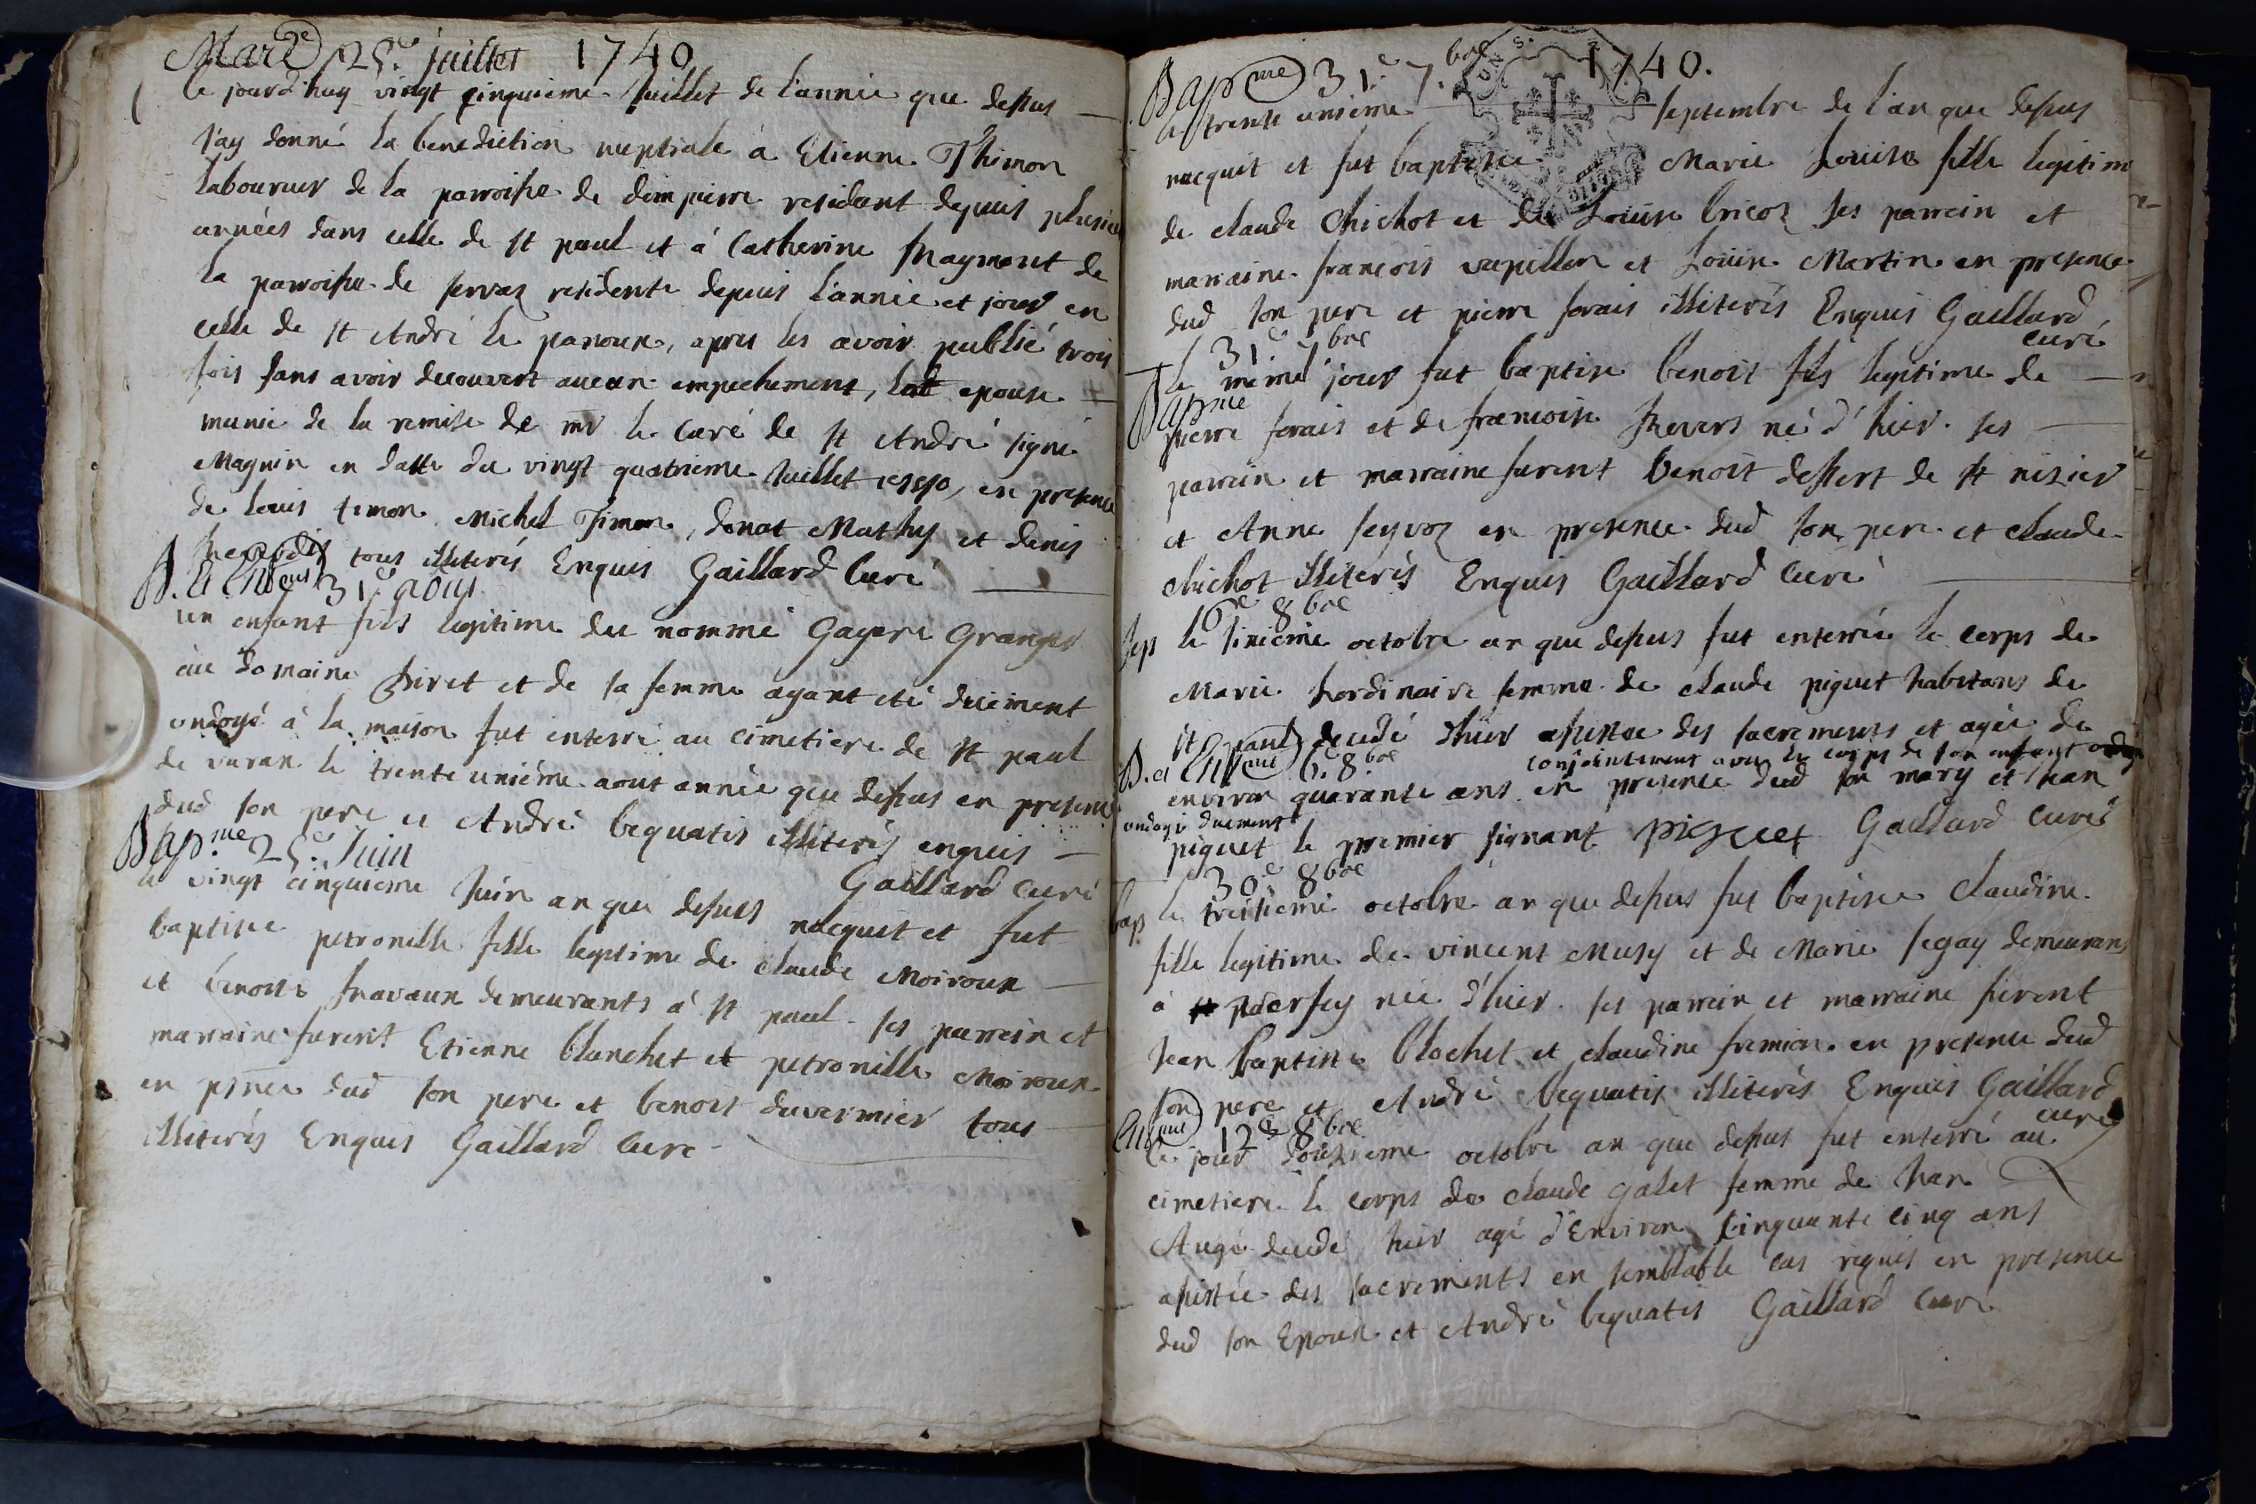 Mar.ge 25.e juillet 1740
Ce jourd'huy vingt cinquieme Juillet de l'année que dessus
J'ay donné la benediction nuptiale à Etienne Thimon
laboureur de la parroisse de dompierre residant depuis plusieurs
années dans celle de st paul et à Catherine
la parroisse de servas residente depuis l'année et jour en
celle de st André le panoux, apres les avoir publié trois
fois sans avoir decouvert aucun empechement, epouse
munie de la remise de mr le Curé de st André signé
Magnin en datte du vingt quatrieme Juillet 1740, en presence
de Louis timon Michel Timon, donat Mathy et denis
tous illiterés Enquis Gaillard Curé
B. et Ent. 31.e août
un enfant fils legitime du nommé Gayere Granger
au domaine Piret et de sa femme ayant eté duement
ondoyé à la maison fut enterré au cimetiere de st paul
de varax le trente unième aout année que dessus en presence
dud son pere et André bequatis illiterés enquis
Gaillard Curé
Bap.me 25.e Juin
le vingt cinquieme Juin an que dessus nacquit et fut
baptisée petronille fille legitime de claude Moiroux
et benoite Travaux demeurants à st paul. ses parrein et
marraine furent Etienne blanchet et petronille Moiroux
en pnce dud son pere et benoit duvernier tous
illiterés Enquis Gaillard Curé
Bapme 31.e 7.bre 1740.
le trente unieme septembre de l'an que dessus
nacquit et fut baptisée Marie Louise fille legitime
de claude Chichot et de Louise bricoz ses parrein et
marraine francois vapillon et Louise Martin en presence
dud son pere et pierre forais illiterés Enquis Gaillard
curé
31.e 7bre
Bapme
le même jour fut baptisé benoit fils legitime de
pierre forais et de francoise Revers né d'hier. ses
parrein et marraine furent benoit dessert de st nizier
et Anne seyvoz en presence dud son pere et claude
chichot illiterés Enquis Gaillard Curé
6e 8bre
Sep le sixieme octobre an que dessus fut enterrée le corps de
Marie hordinaire femme de claude piquet habitans de
st paul decedé d'hier assistée des sacrements et agée de
B. et Ent 6.e 8bre
conjointement avec le corps de son enfant
environ quarante ans en presence dud son mary et Jean
ondoyé duement
piquet le premier signant piquet Gaillard Curé
30.e 8bre
bap le trentieme octobre an que dessus fut baptisée Claudine
fille legitime de vincent Musy et de Marie segay demeurans
à née d'hier. ses parrein et marraine furent
Jean baptiste blochet et claudine fremion en presence dud
son pere et André bequatis illiterés Enquis Gaillard
curé
Entment 12e 8bre
Ce jour douzieme octobre an que dessus fut enterré au
cimetiere le corps de claude galet femme de Jean
Augé decedé hier agé d'Environ Cinquante cinq ans
assistée des sacrements en semblable cas requis en presence
dud son Epoux et André bequatis Gaillard Curé